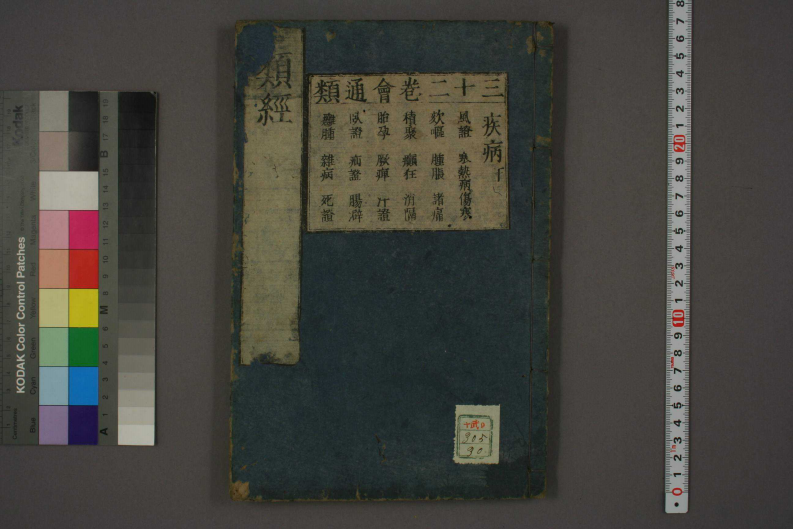 類經
三十二卷會通類
疾病
風證 寒熱病 傷寒
欬嘔 腫脹 諸痛
積聚 癲狂
胎孕 證
臥證 證 腸澼
癰腫 雜病 死證
905
90
Kodak
KODAK Color Control Patches
Blue Cyan Green Yellow Red Magenta
A 1 2 3 4 5 6 M 8 9 10 11 12 13 14 15 B 17 18 19
0 1 2 3 4 5 6 7 8 9 10 1 2 3 4 5 6 7 8 9 20 1 2 3 4 5 6 7 8